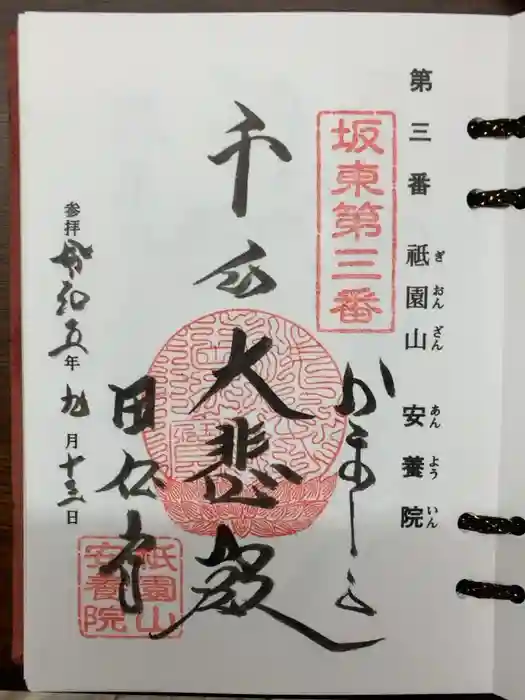 第三番 祇園山 安養院
ぎおんざん あんよういん
坂東第三番
千手
大悲殿
田代堂
参拝 令和五年 九月十三日
祇園山
安養院